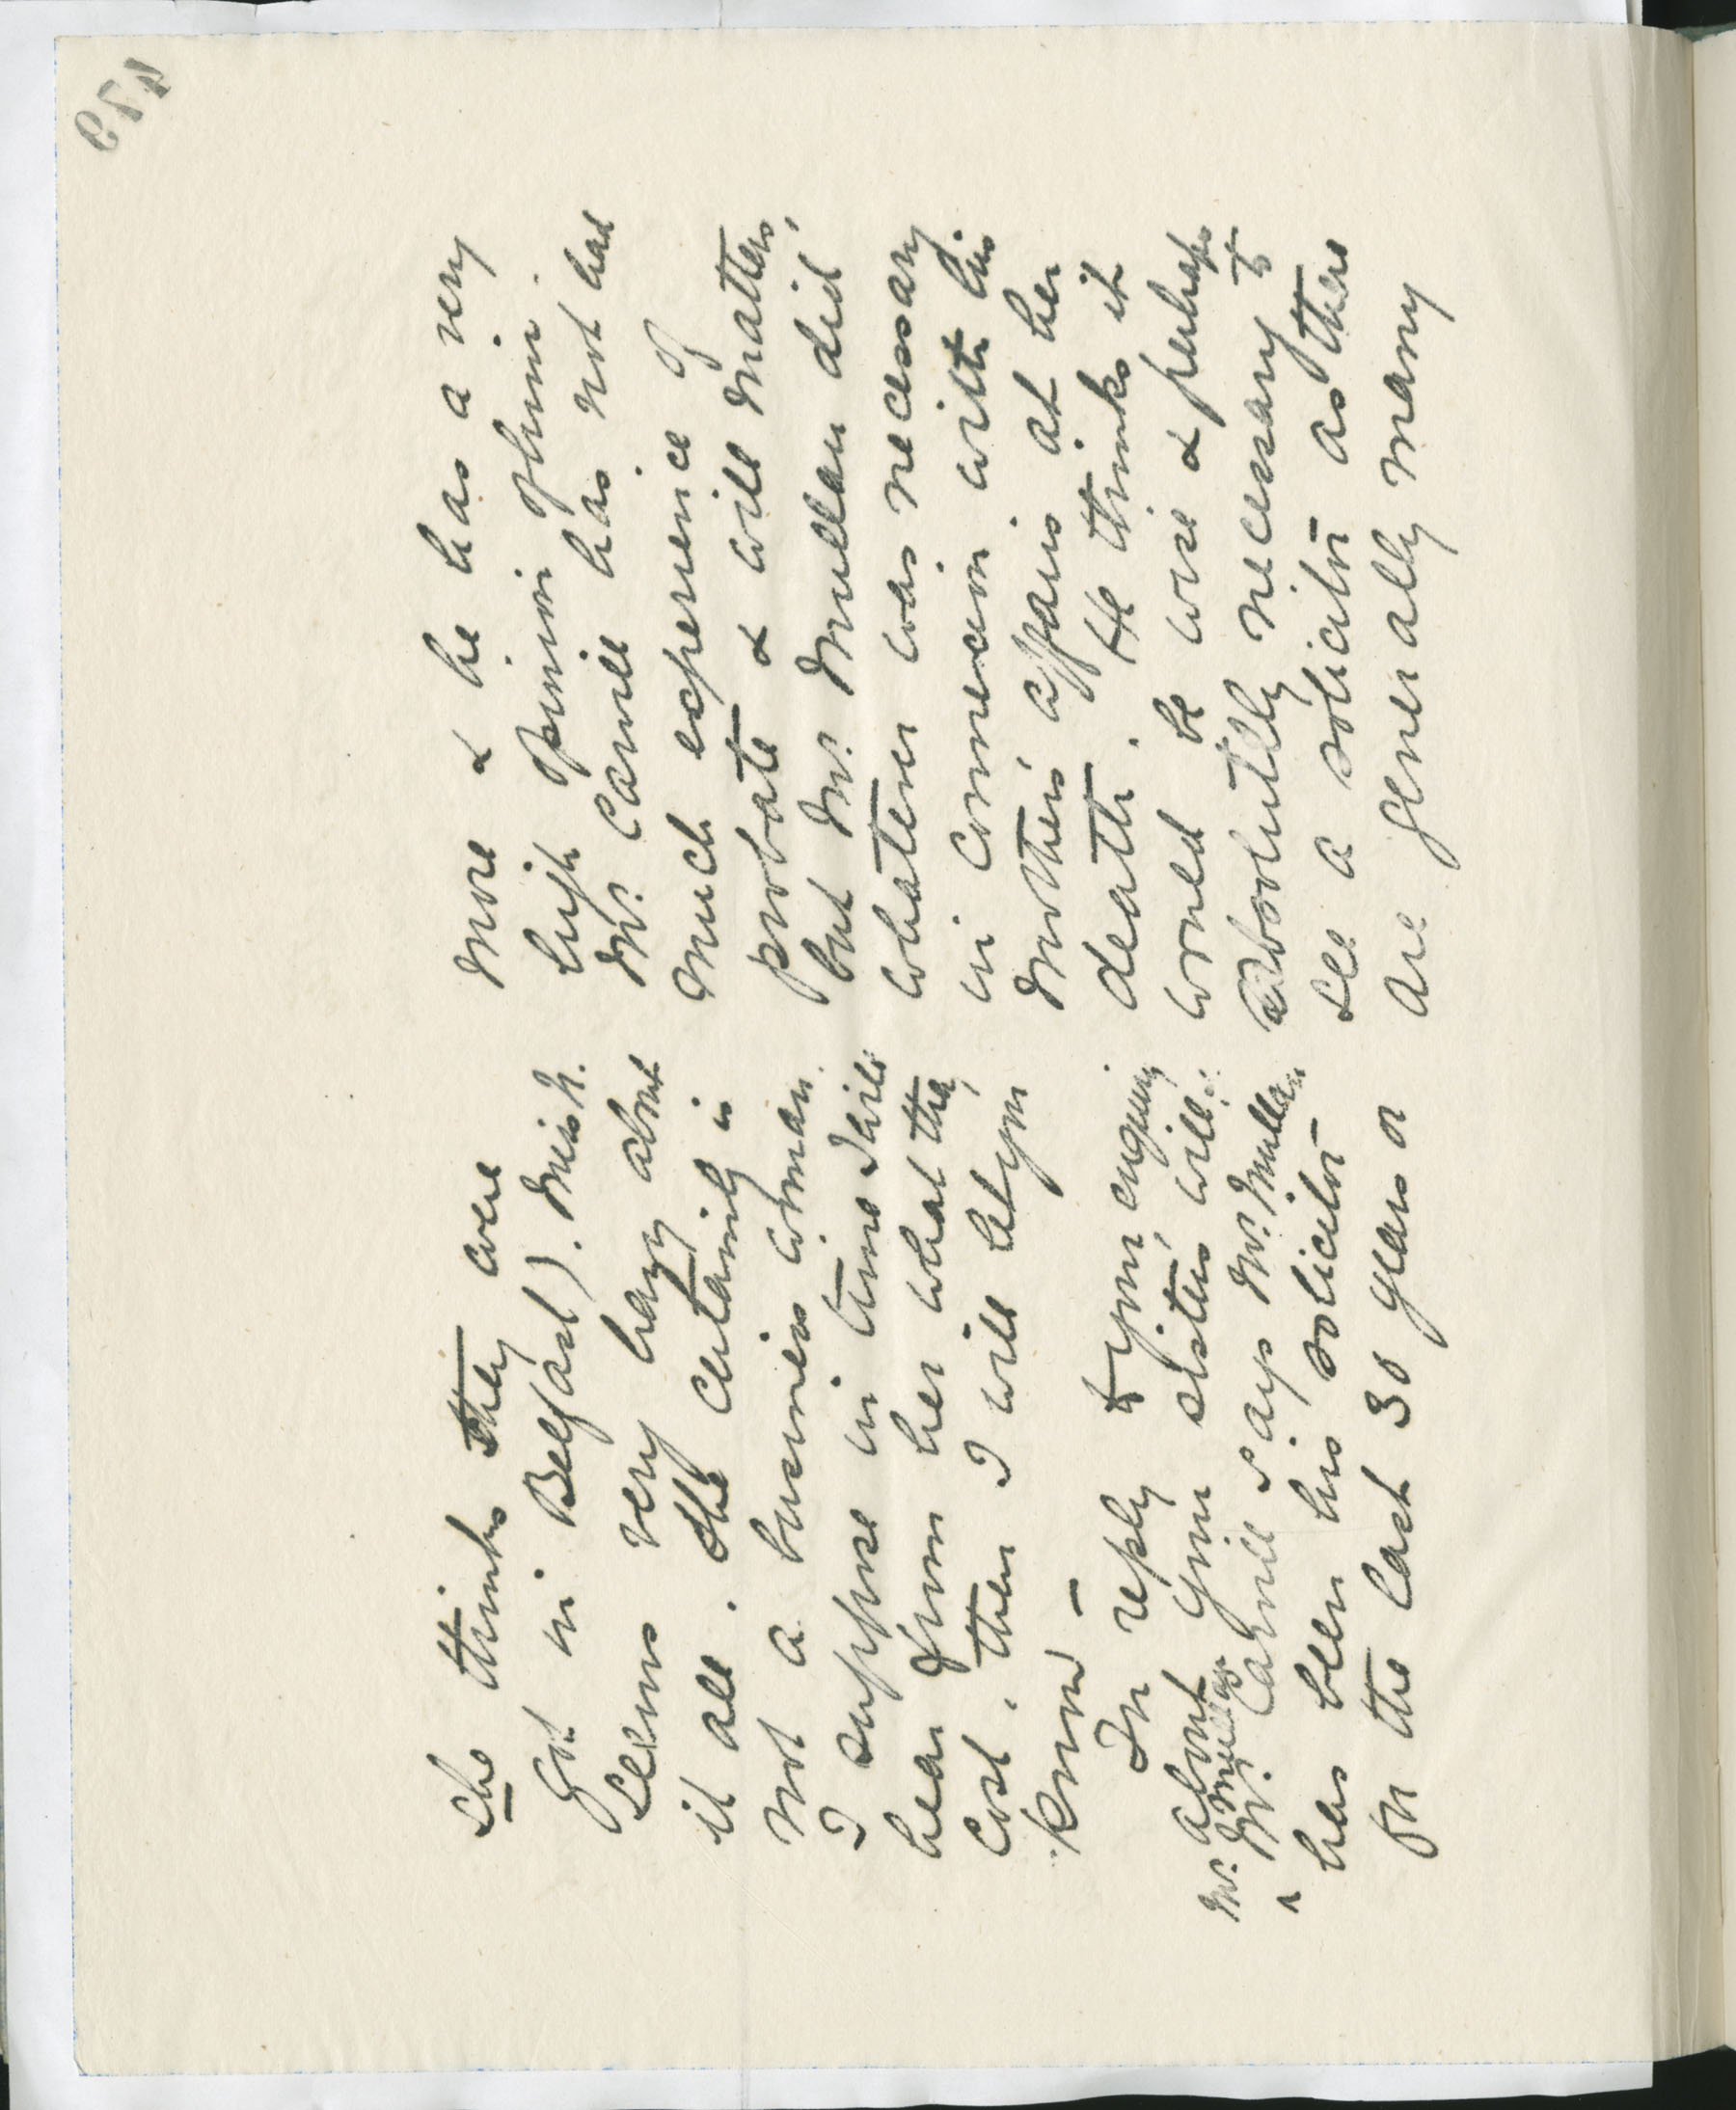 she thinks they were
got in Belfast). Miss H.
seems very hazy about
it all. She certainly is
not a business woman.
I suppose in time I will
hear from her what they
cost, then I will let you
know –
In reply to your enquiry
about your sister's will:
Mr. Mullan
Mr. Carvill says Mr. Mullan
has been his solicitor
for the last 30 years or
more & he has a very
high opinion of him.
Mr. Carvill has not had
much experience of
probate & will matters,
but Mr. Mullan did
whatever was necessary
in connexion with his
mother's affairs at her
death. He thinks it
would be wise & perhaps
absolutely necessary to
see a solicitor as there
are generally many